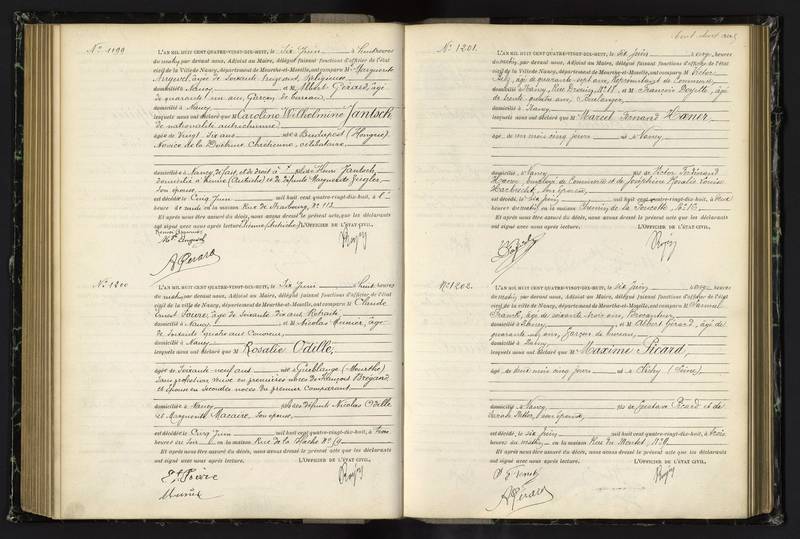 No 1199
L'AN MIL HUIT CENT QUATRE-VINGT-DIX-HUIT, le Six Juin à huit heures
du matin, par devant nous, Adjoint au Maire, délégué faisant fonctions d'officier de l'état
civil de la Ville de Nancy, département de Meurthe-et-Moselle, ont comparu Me Marguerite
âgée de Soixante ans, Religieuse
domiciliée à Nancy et M Albert Gérard, âgé
de quarante un ans, Garçon de bureau,
domicilié à Nancy
lesquels nous ont déclaré que M Caroline Wilhelmine Jantsch
de nationalité autrichienne
âgée de Vingt six ans née à Budapest (Hongrie)
Novice de la Doctrine Chrétienne, célibataire
domiciliée à Nancy de fait, et de droit à fille de Henri Jantsch,
domicilié à Vienne (Autriche) et de défunte Marguerite Ziegler,
son épouse
est décédée le Cinq Juin mil huit cent quatre-vingt-dix-huit, à
heure en la maison Rue de Strasbourg, No 113
Et après nous être assuré du décès, nous avons dressé le présent acte que les déclarants
ont signé avec nous après lecture. L'OFFICIER DE L'ÉTAT CIVIL,
A Gérard
No 1200
L'AN MIL HUIT CENT QUATRE-VINGT-DIX-HUIT, le Six Juin à huit heures
du matin, par devant nous, Adjoint au Maire, délégué faisant fonctions d'officier de l'état
civil de la ville de Nancy, département de Meurthe-et-Moselle, ont comparu M Claude
Ernest Poivre, âgé de Soixante dix ans Retraité
domicilié à Nancy et M Nicolas Munier, âgé
de Soixante quatre ans
domicilié à Nancy
lesquels nous ont déclaré que M Rosalie Odille,
âgée de Soixante neuf ans née à Gueblange (Meurthe)
Sans profession veuve en premières noces de François
et épouse en secondes noces du premier comparant
domiciliée à Nancy fille des défunts Nicolas Odille
et Marguerite Macaire, son épouse,
est décédée le Cinq Juin mil huit cent quatre-vingt-dix-huit, à trois
heures du soir en la maison Rue de la Hache No 59
Et après nous être assuré du décès, nous avons dressé le présent acte que les déclarants
ont signé avec nous après lecture. L'OFFICIER DE L'ÉTAT CIVIL,
Munier
No 1201.
L'AN MIL HUIT CENT QUATRE-VINGT-DIX-HUIT, le six Juin à onze heures
du matin, par devant nous, Adjoint au Maire, délégué faisant fonctions d'officier de l'état
civil de la Ville de Nancy, département de Meurthe-et-Moselle, ont comparu M Victor
âgé de quarante-sept ans, Représentant de Commerce
domicilié à Nancy, Rue Drouin, No 18, et M François Doyotte, âgé
de trente-quatre ans, Boulanger,
domicilié à Nancy
lesquels nous ont déclaré que M Marcel Fernand Haner
âgé de un mois cinq jours né à Nancy
domicilié à Nancy fils de Victor Ferdinand
Haner, employé de Commerce et de Joséphine Rosalie Louise
Harbrecht, son épouse
est décédé, le six Juin mil huit cent quatre-vingt-dix-huit, à deux
heures du matin en la maison Chemin de la No 16
Et après nous être assuré du décès, nous avons dressé le présent acte que les déclarants
ont signé avec nous après lecture. L'OFFICIER DE L'ÉTAT CIVIL,
No 1202.
L'AN MIL HUIT CENT QUATRE-VINGT-DIX-HUIT, le six Juin à onze heures
du matin, par devant nous, Adjoint au Maire, délégué faisant fonctions d'officier de l'état
civil de la ville de Nancy, département de Meurthe-et-Moselle, ont comparu M
Franck, âgé de soixante-trois ans, Brocanteur
domicilié à Nancy et M Albert Gérard, âgé de
quarante un ans, Garçon de bureau,
domicilié à Nancy
lesquels nous ont déclaré que M Maxime Picard,
âgé de mois cinq jours né à Clichy (Seine),
domicilié à Nancy fils de Gustave Picard et de
Sarah son épouse
est décédé, le six Juin mil huit cent quatre-vingt-dix-huit, à trois
heures du matin en la maison Rue du No 9
Et après nous être assuré du décès, nous avons dressé le présent acte que les déclarants
ont signé avec nous après lecture. L'OFFICIER DE L'ÉTAT CIVIL,
A Gérard